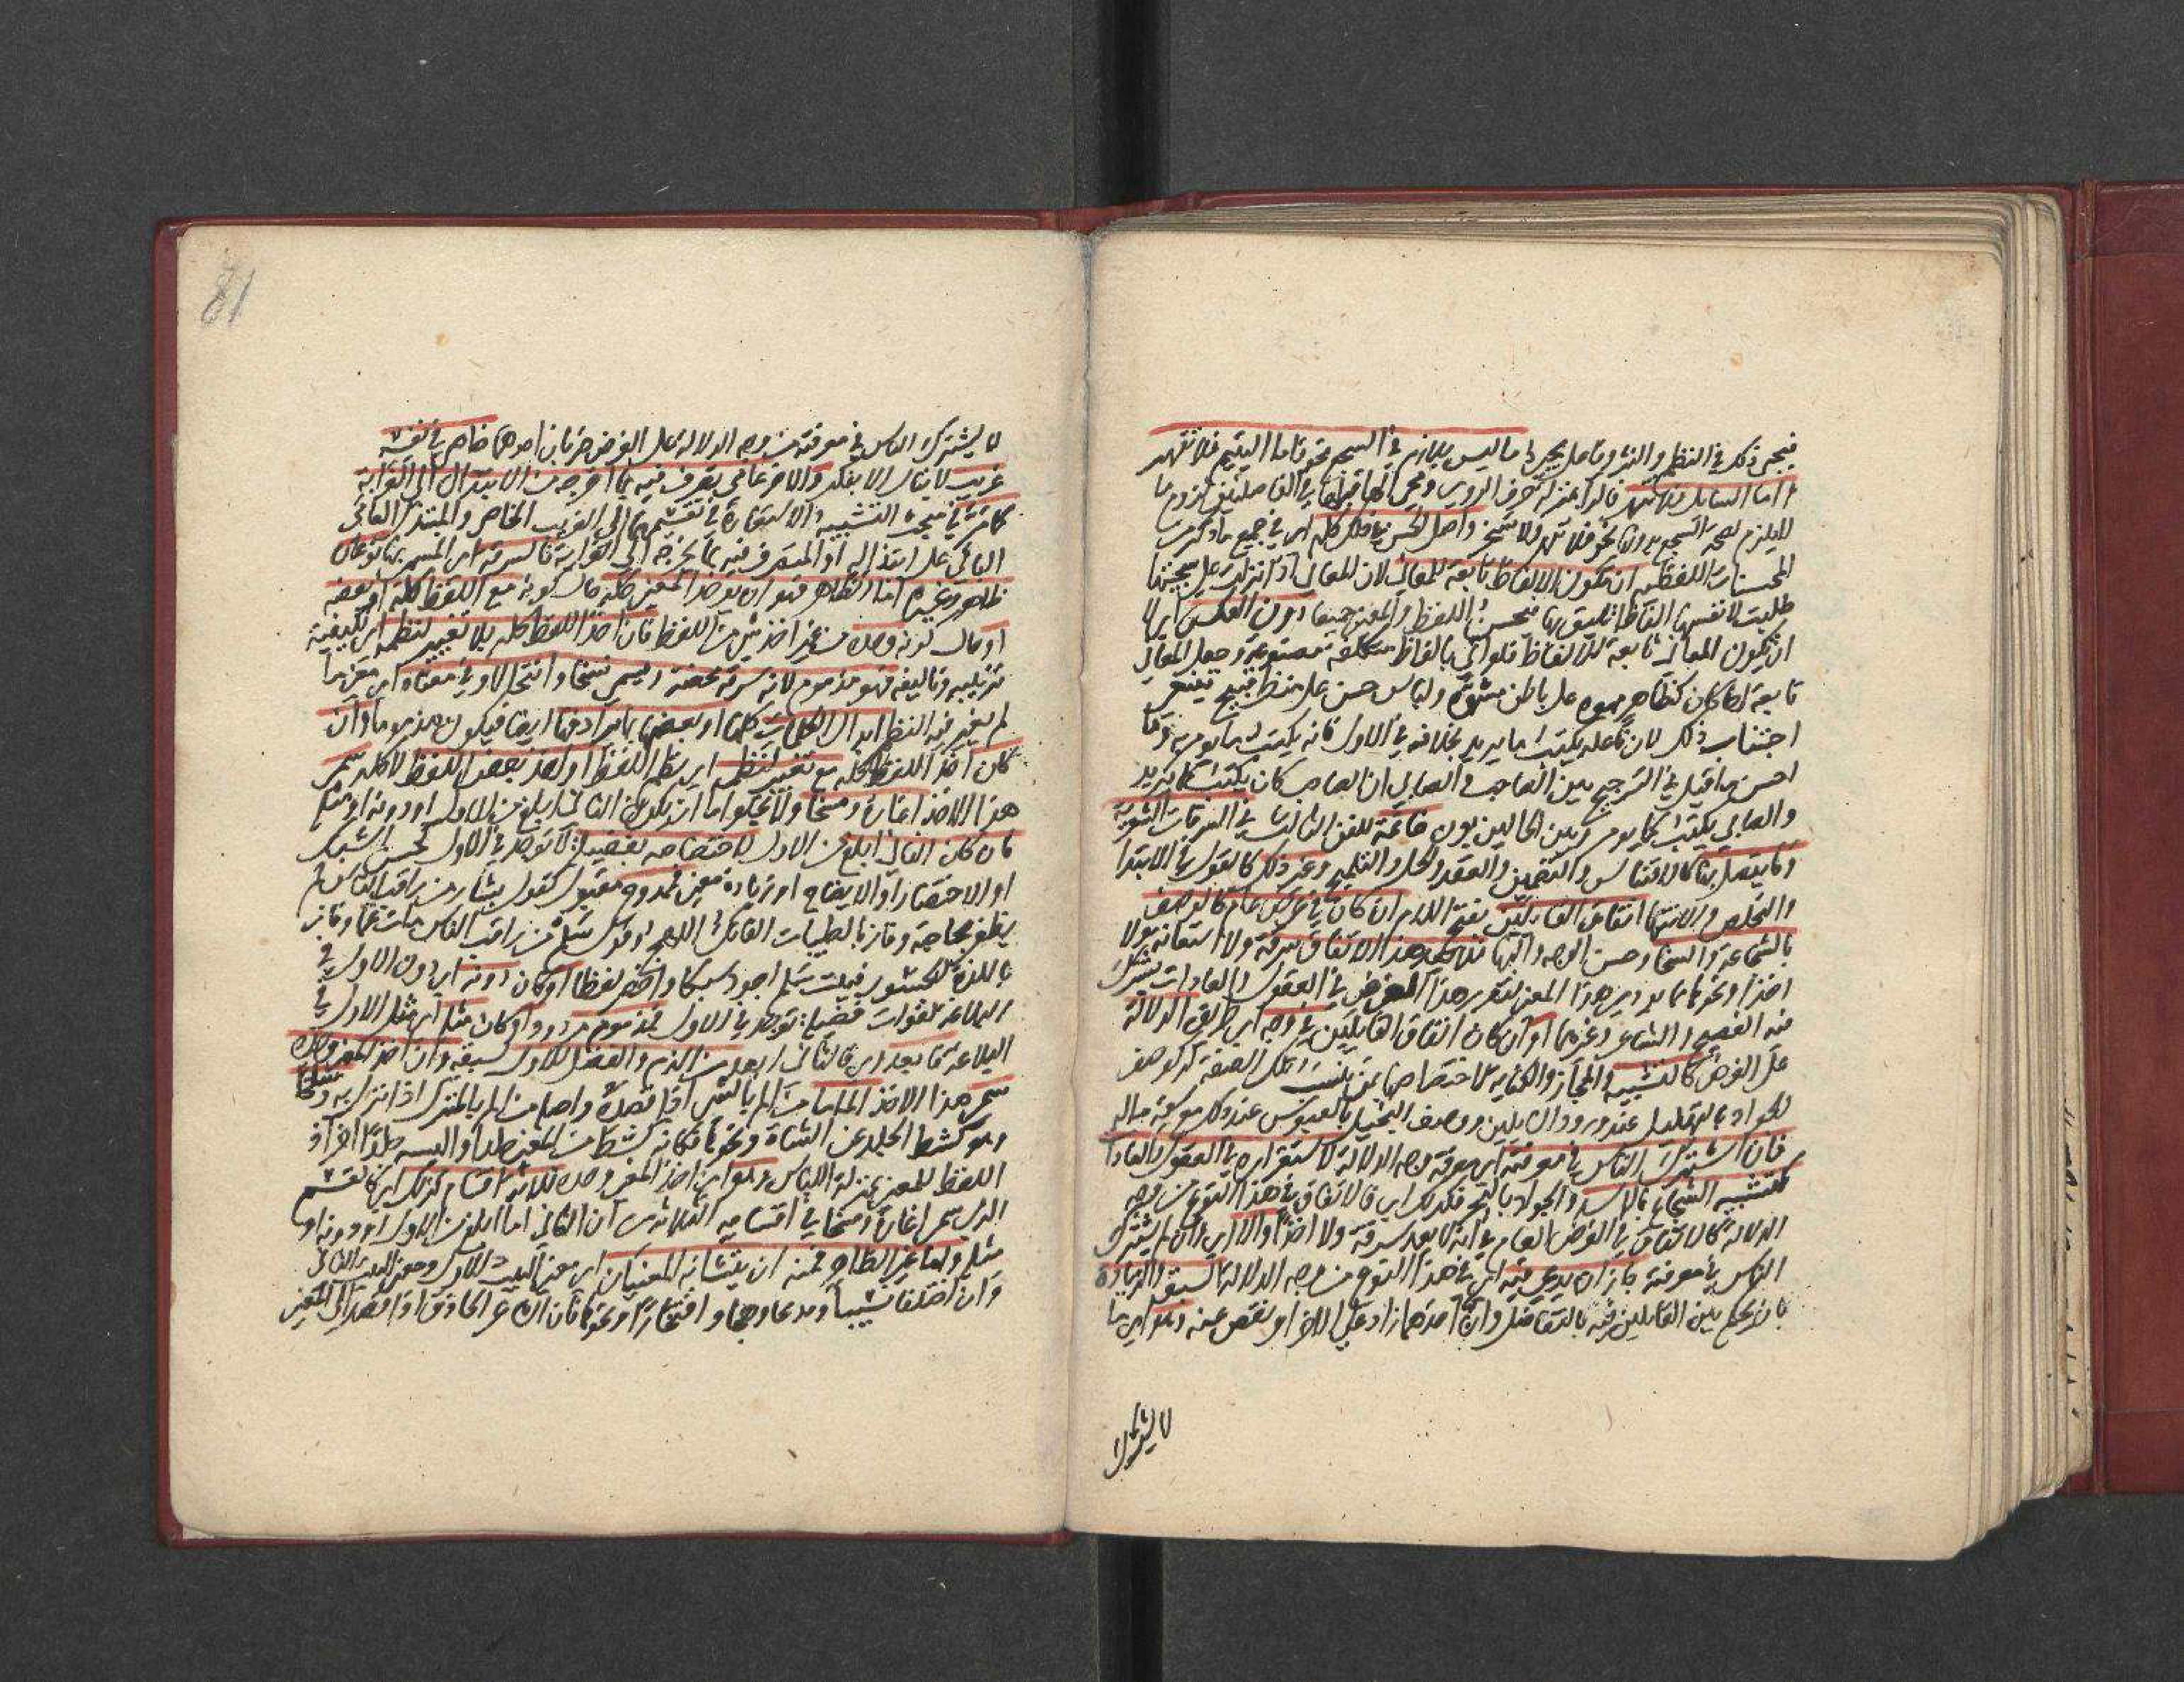 فيجئ ذلك في النظم والنثر وفاعل يجئ ما ليس بلازم في السجع نحو فاما اليتيم فلا تقهر
واما السائل فلا تنهر فالراء بمنزلة حرف الروي ومجئ الهاء قبلها في الفاصلتين لزوم ما
لا يلزم لصحة السجع بدونها نحو فلا تنهر ولا تسخر واصل الحسن في ذلك كله اى في جميع ما ذكر من
المحسنات اللفظية ان تكون الالفاظ تابعة للمعاني لان المعاني اذا تركت على سجيتها
طلبت لانفسها الفاظا تليق بها فيحسن اللفظ والمعنى جميعا دون العكس اى لا
ان يكون المعاني تابعة للالفاظ فلو اتى بالفاظ متكلفة مصنوعة وجعل المعاني
تابعة لها كان كظاهر مموه على باطن مشوه ولباس حسن على منظر قبيح فينبغي
اجتناب ذلك لان فاعله يكتب ما يريد بخلافه في الاول فانه يكتب ما يؤمر به وما
احسن ما قيل في الترجيح بين الصاحب والصابي ان الصاحب كان يكتب كما يريد
والصابي يكتب كما يؤمر وبين الحالين بون خاتمة للفن الثالث في السرقات الشعرية
وما يتصل بها كالاقتباس والتضمين والعقد والحل والتلميح وغير ذلك كالقول في الابتداء
والتخلص والانتهاء اتفاق القائلين بفتح اللام ان كان في غرض عام كالوصف
بالشجاعة والسخاء وحسن الوجه والبهاء فلا يعد هذا الاتفاق سرقة ولا استعانة ولا
اخذا ونحوها مما يؤدي هذا المعنى لتقرر هذا الغرض في العقول والعادات يشترك
فيه الفصيح والشاعر وغيرهما وان كان اتفاق القائلين في وجه اى طريق الدلالة
على الغرض كالتشبيه والمجاز والكناية لاختصاصها بمن ثبتت تلك الصفة له كوصف
الجواد بالتهلل عند ورود السائلين ووصف البخيل بالعبوس عند ذلك مع سعة ماله
فان اشترك الناس في معرفته اى معرفة وجه الدلالة لاستقراره في العقول والعادات
كتشبيه الشجاع بالاسد والجواد بالبحر فكذلك اى فالاتفاق في هذا النوع من وجه
الدلالة كالاتفاق في الغرض العام في انه لا يعد سرقة ولا اخذا والا اى وان لم يشترك
الناس في معرفته جاز ان يدعى فيه اى في هذا النوع من وجه الدلالة السبق والزيادة
بان يحكم بين القائلين فيه بالتفاضل وان احدهما زاد على الاخر او نقص عنه وهو اى ما
لا يشترك
81
لا يشترك الناس في معرفته من وجه الدلالة على الغرض ضربان احدهما خاص في نفسه
غريب لا ينال الا بفكر والاخر عامي تصرف فيه بما اخرجه من الابتذال الى الغرابة
كما مر في بحث التشبيه والاستعارة في تقسيمهما الى الغريب الخاص والمبتذل العامي
الباقي على ابتذاله او المتصرف فيه بما يخرجه الى الغرابة فالسرقة اى المسمى بها نوعان
ظاهر وغيره اما الظاهر فهو ان يؤخذ المعنى كله حال كونه مع اللفظ كله او بعضه
او حال كونه وحده من غير اخذ شئ من اللفظ فان اخذ اللفظ كله بلا تغيير لنظمه اى لكيفية
ترتيبه وتاليفه فهو مذموم لانه سرقة محضة ويسمى نسخا وانتحالا وفي معناه اى معنى ما
لم يغير فيه النظم ابدال الكلمات كلها او بعضها بما يرادفها ايضا فيكون مذموما وان
كان اخذ اللفظ كله مع تغيير لنظمه اى نظم اللفظ او اخذ بعض اللفظ لا كله سمى
هذا الاخذ اغارة ومسخا ولا يخلو اما ان يكون الثاني ابلغ من الاول او دونه او مثله
فان كان الثاني ابلغ من الاول لاختصاصه بفضيلة لا توجد في الاول كحسن السبك
او الاختصار او الايضاح او زيادة معنى فممدوح مقبول كقول بشار من راقب الناس لم
يظفر بحاجته وفاز بالطيبات الفاتك اللهج وقول سلم من راقب الناس مات غما وفاز
باللذة الجسور فبيت سلم اجود سبكا واخصر لفظا او كان دونه اى دون الاول في
البلاغة لفوات فضيلة توجد في الاول فمذموم مردود او كان مثله اى مثل الاول في
البلاغة فابعد اى فالثاني ابعد من الذم والفضل للاول لسبقه وان اخذ المعنى وحده
سمى هذا الاخذ الماما من الم بالشئ اذا قصده واصله من الم بالمنزل اذا نزل به وسلخا
وهو كشط الجلد عن الشاة ونحوها فكانه كشط من المعنى جلدا والبسه جلدا اخر اذ
اللفظ للمعنى بمنزلة اللباس وهو اى اخذ المعنى وحده ثلاثة اقسام كذلك اى كانقسام
الذي سمى اغارة ومسخا في اقسامه الثلاثة من ان الثاني اما ابلغ من الاول او دونه او
مثله واما غير الظاهر فمنه ان يتشابه المعنيان اى معنى البيت الاول ومعنى البيت الثاني
وان اختلفا نسيبا ومدحا وهجاء وافتخارا ونحوها فان الشاعر الحاذق اذا قصد الى المعنى